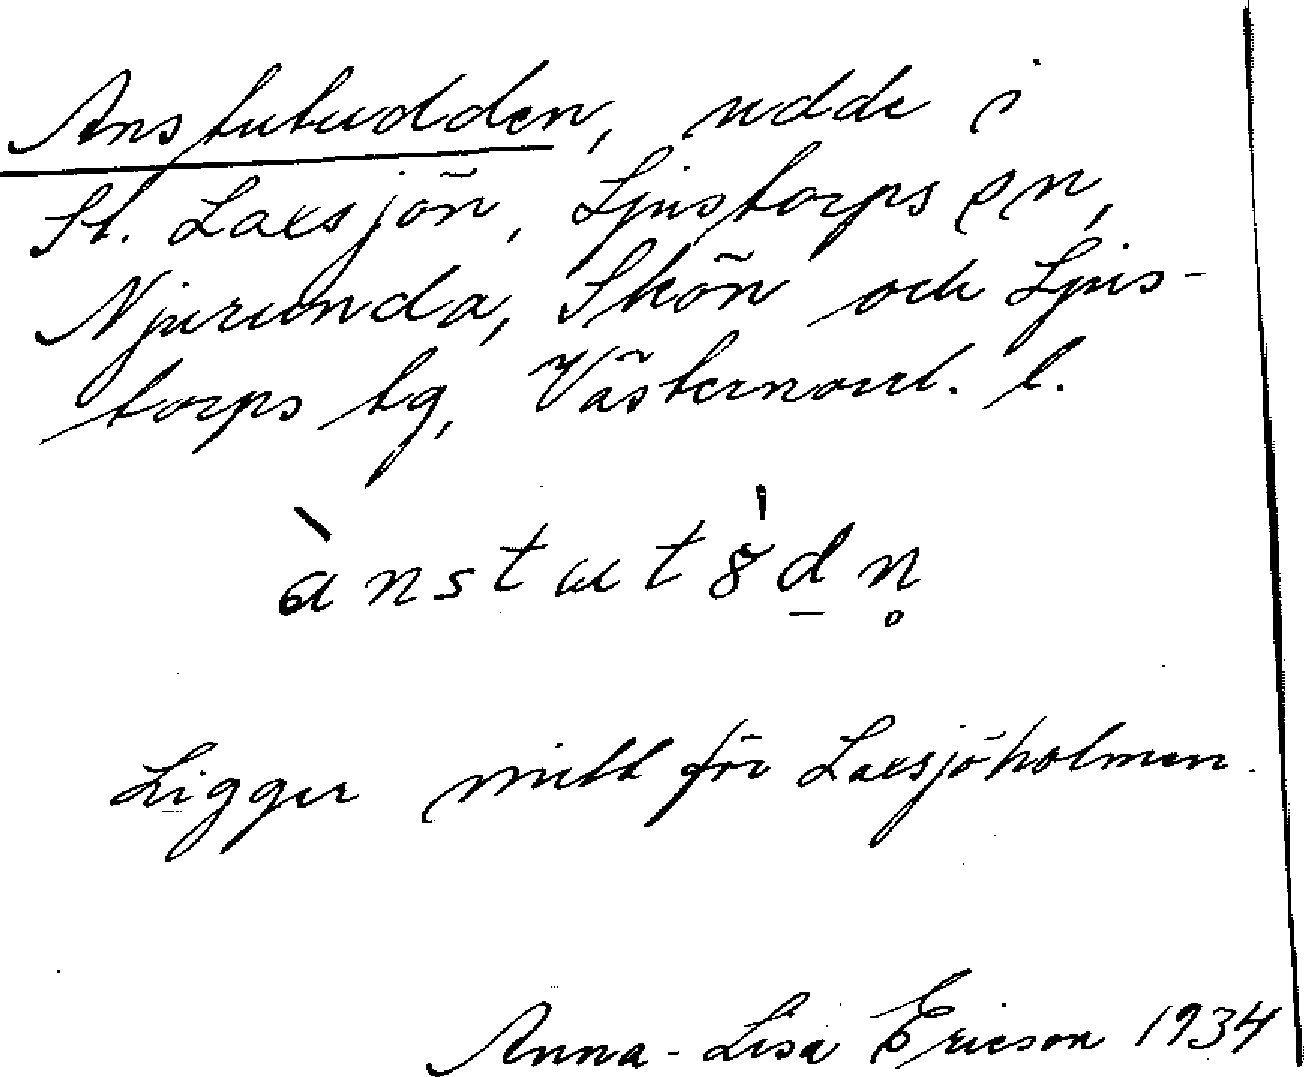 Anstutudden, udde i
St. Laxsjön, Ljustorps sn,
Njurunda, Skön och Ljus-
torps tg, Västernorrl. l.
Ligger mitt för Laxsjöholmen.
Anna-Lisa Ericson 1934